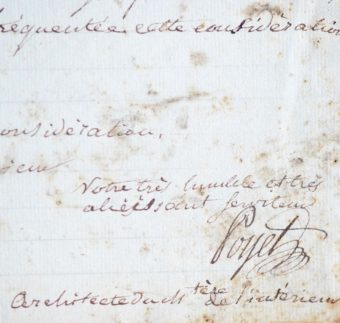 fréquentée cette considération
considération,
Votre très humble et très
obéissant serviteur
Poyet
architecte du M tère de l'intérieur